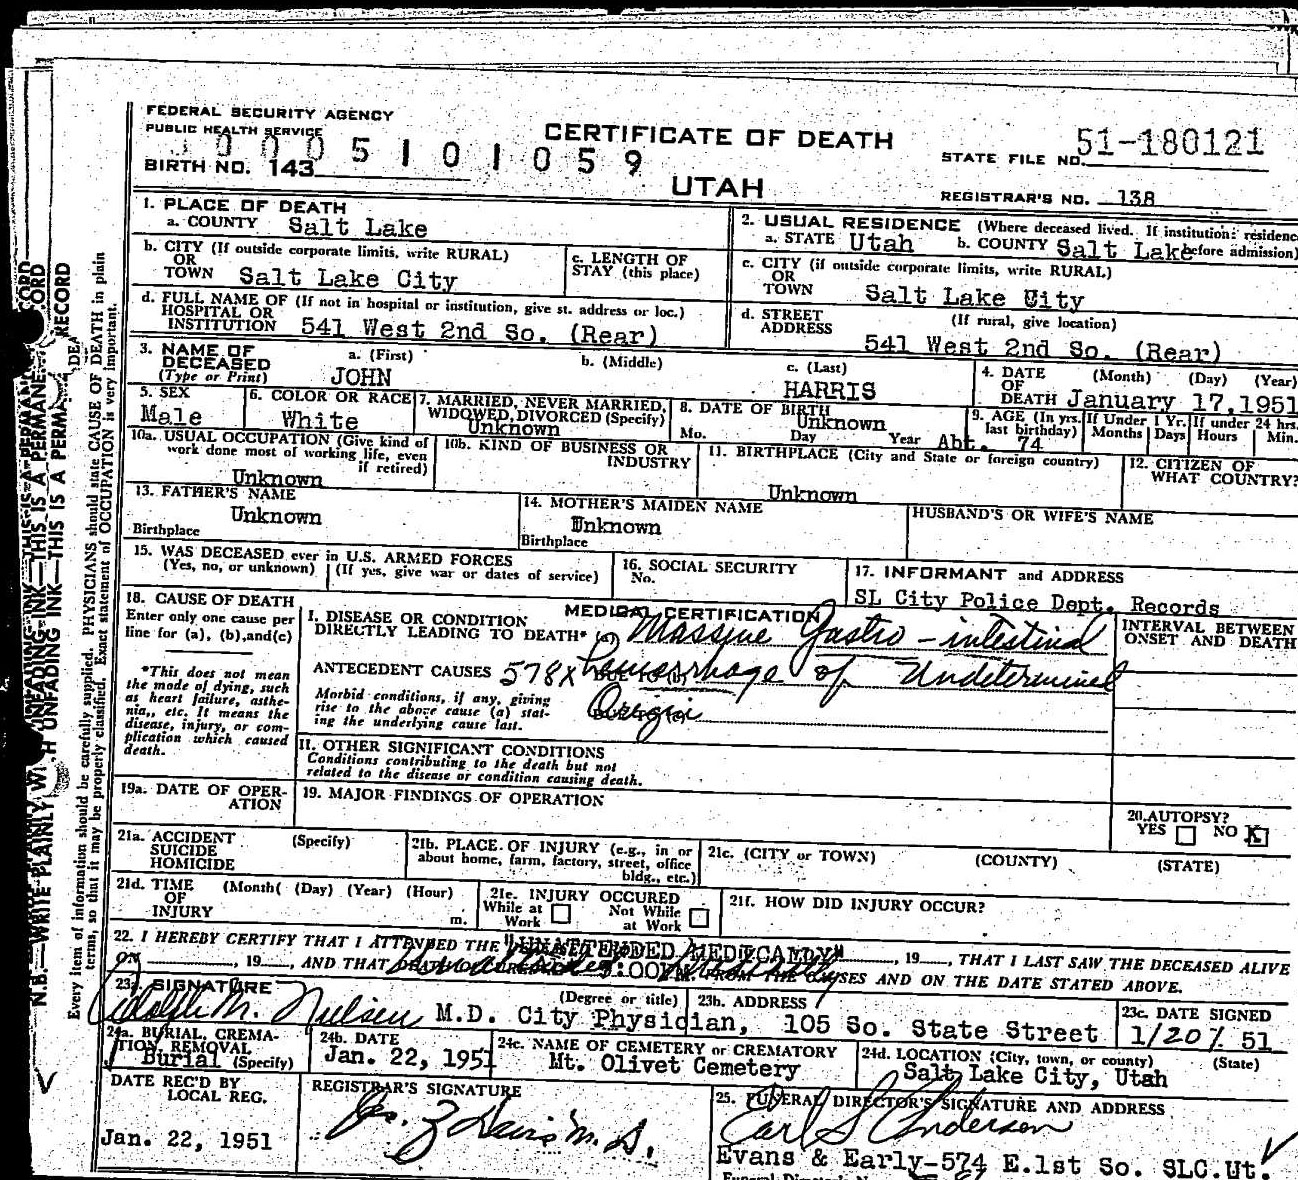 FEDERAL SECURITY AGENCY
PUBLIC HEALTH SERVICE
CERTIFICATE OF DEATH
51-180121
STATE FILE NO.
0 0 0 5 1 0 1 0 5 9
BIRTH NO. 143
UTAH
REGISTRAR'S NO. 138
1. PLACE OF DEATH
a. COUNTY Salt Lake
2. USUAL RESIDENCE (Where deceased lived. If institution: residence
a. STATE Utah b. COUNTY Salt Lake before admission)
b. CITY (If outside corporate limits, write RURAL)
OR
TOWN Salt Lake City
c. LENGTH OF
STAY (this place)
c. CITY (if outside corporate limits, write RURAL)
OR
TOWN Salt Lake City
d. FULL NAME OF (If not in hospital or institution, give st. address or loc.)
HOSPITAL OR
INSTITUTION 541 West 2nd So. (Rear)
d. STREET (If rural, give location)
ADDRESS
541 West 2nd So. (Rear)
3. NAME OF
DECEASED
(Type or Print)
a. (First) b. (Middle) c. (Last)
JOHN HARRIS
4. DATE (Month) (Day) (Year)
OF
DEATH January 17,1951
5. SEX
Male
6. COLOR OR RACE
White
7. MARRIED, NEVER MARRIED,
WIDOWED, DIVORCED (Specify)
Unknown
8. DATE OF BIRTH
Unknown
Mo. Day Year
9. AGE (In yrs.
last birthday)
Abt. 74
If Under 1 Yr.
Months Days
If under 24 hrs.
Hours Min.
10a. USUAL OCCUPATION (Give kind of
work done most of working life, even
if retired)
Unknown
10b. KIND OF BUSINESS OR
INDUSTRY
11. BIRTHPLACE (City and State or foreign country)
Unknown
12. CITIZEN OF
WHAT COUNTRY?
13. FATHER'S NAME
Unknown
Birthplace
14. MOTHER'S MAIDEN NAME
Unknown
Birthplace
HUSBAND'S OR WIFE'S NAME
15. WAS DECEASED ever in U.S. ARMED FORCES
(Yes, no, or unknown) (If yes, give war or dates of service)
16. SOCIAL SECURITY
No.
17. INFORMANT and ADDRESS
SL City Police Dept. Records
18. CAUSE OF DEATH
Enter only one cause per
line for (a), (b), and (c)
*This does not mean
the mode of dying, such
as heart failure, asthe-
nia, etc. It means the
disease, injury, or com-
plication which caused
death.
MEDICAL CERTIFICATION
I. DISEASE OR CONDITION
DIRECTLY LEADING TO DEATH* (a) Massive Gastro-intestinal
ANTECEDENT CAUSES 578X hemorrhage of Undetermined
Morbid conditions, if any, giving
rise to the above cause (a) stat-
ing the underlying cause last.
Origin
INTERVAL BETWEEN
ONSET AND DEATH
II. OTHER SIGNIFICANT CONDITIONS
Conditions contributing to the death but not
related to the disease or condition causing death.
19a. DATE OF OPER-
ATION
19. MAJOR FINDINGS OF OPERATION
20. AUTOPSY?
YES NO X
21a. ACCIDENT (Specify)
SUICIDE
HOMICIDE
21b. PLACE OF INJURY (e.g., in or
about home, farm, factory, street, office
bldg., etc.)
21c. (CITY or TOWN) (COUNTY) (STATE)
21d. TIME (Month( (Day) (Year) (Hour)
OF
INJURY m.
21e. INJURY OCCURED
While at Work Not While at Work
21f. HOW DID INJURY OCCUR?
22. I HEREBY CERTIFY THAT I ATTENDED THE "UNATTENDED MEDICALLY" , 19 , THAT I LAST SAW THE DECEASED ALIVE
ON , 19 , AND THAT CAUSES AND ON THE DATE STATED ABOVE.
23a. SIGNATURE (Degree or title)
Adolph M. Nielsen M.D. City Physician,
23b. ADDRESS
105 So. State Street
23c. DATE SIGNED
1/20/51
24a. BURIAL, CREMA-
TION, REMOVAL
Burial (Specify)
24b. DATE
Jan. 22, 1951
24c. NAME OF CEMETERY or CREMATORY
Mt. Olivet Cemetery
24d. LOCATION (City, town, or county) (State)
Salt Lake City, Utah
DATE REC'D BY
LOCAL REG.
Jan. 22, 1951
REGISTRAR'S SIGNATURE
25. FUNERAL DIRECTOR'S SIGNATURE AND ADDRESS
Carl S Anderson
Evans & Early-574 E.1st So. SLC.Ut.
N.B.—WRITE PLAINLY WITH UNFADING INK—THIS IS A PERMANENT RECORD
Every item of information should be carefully supplied. PHYSICIANS should state CAUSE OF DEATH in plain
terms, so that it may be properly classified. Exact statement of OCCUPATION is very important.